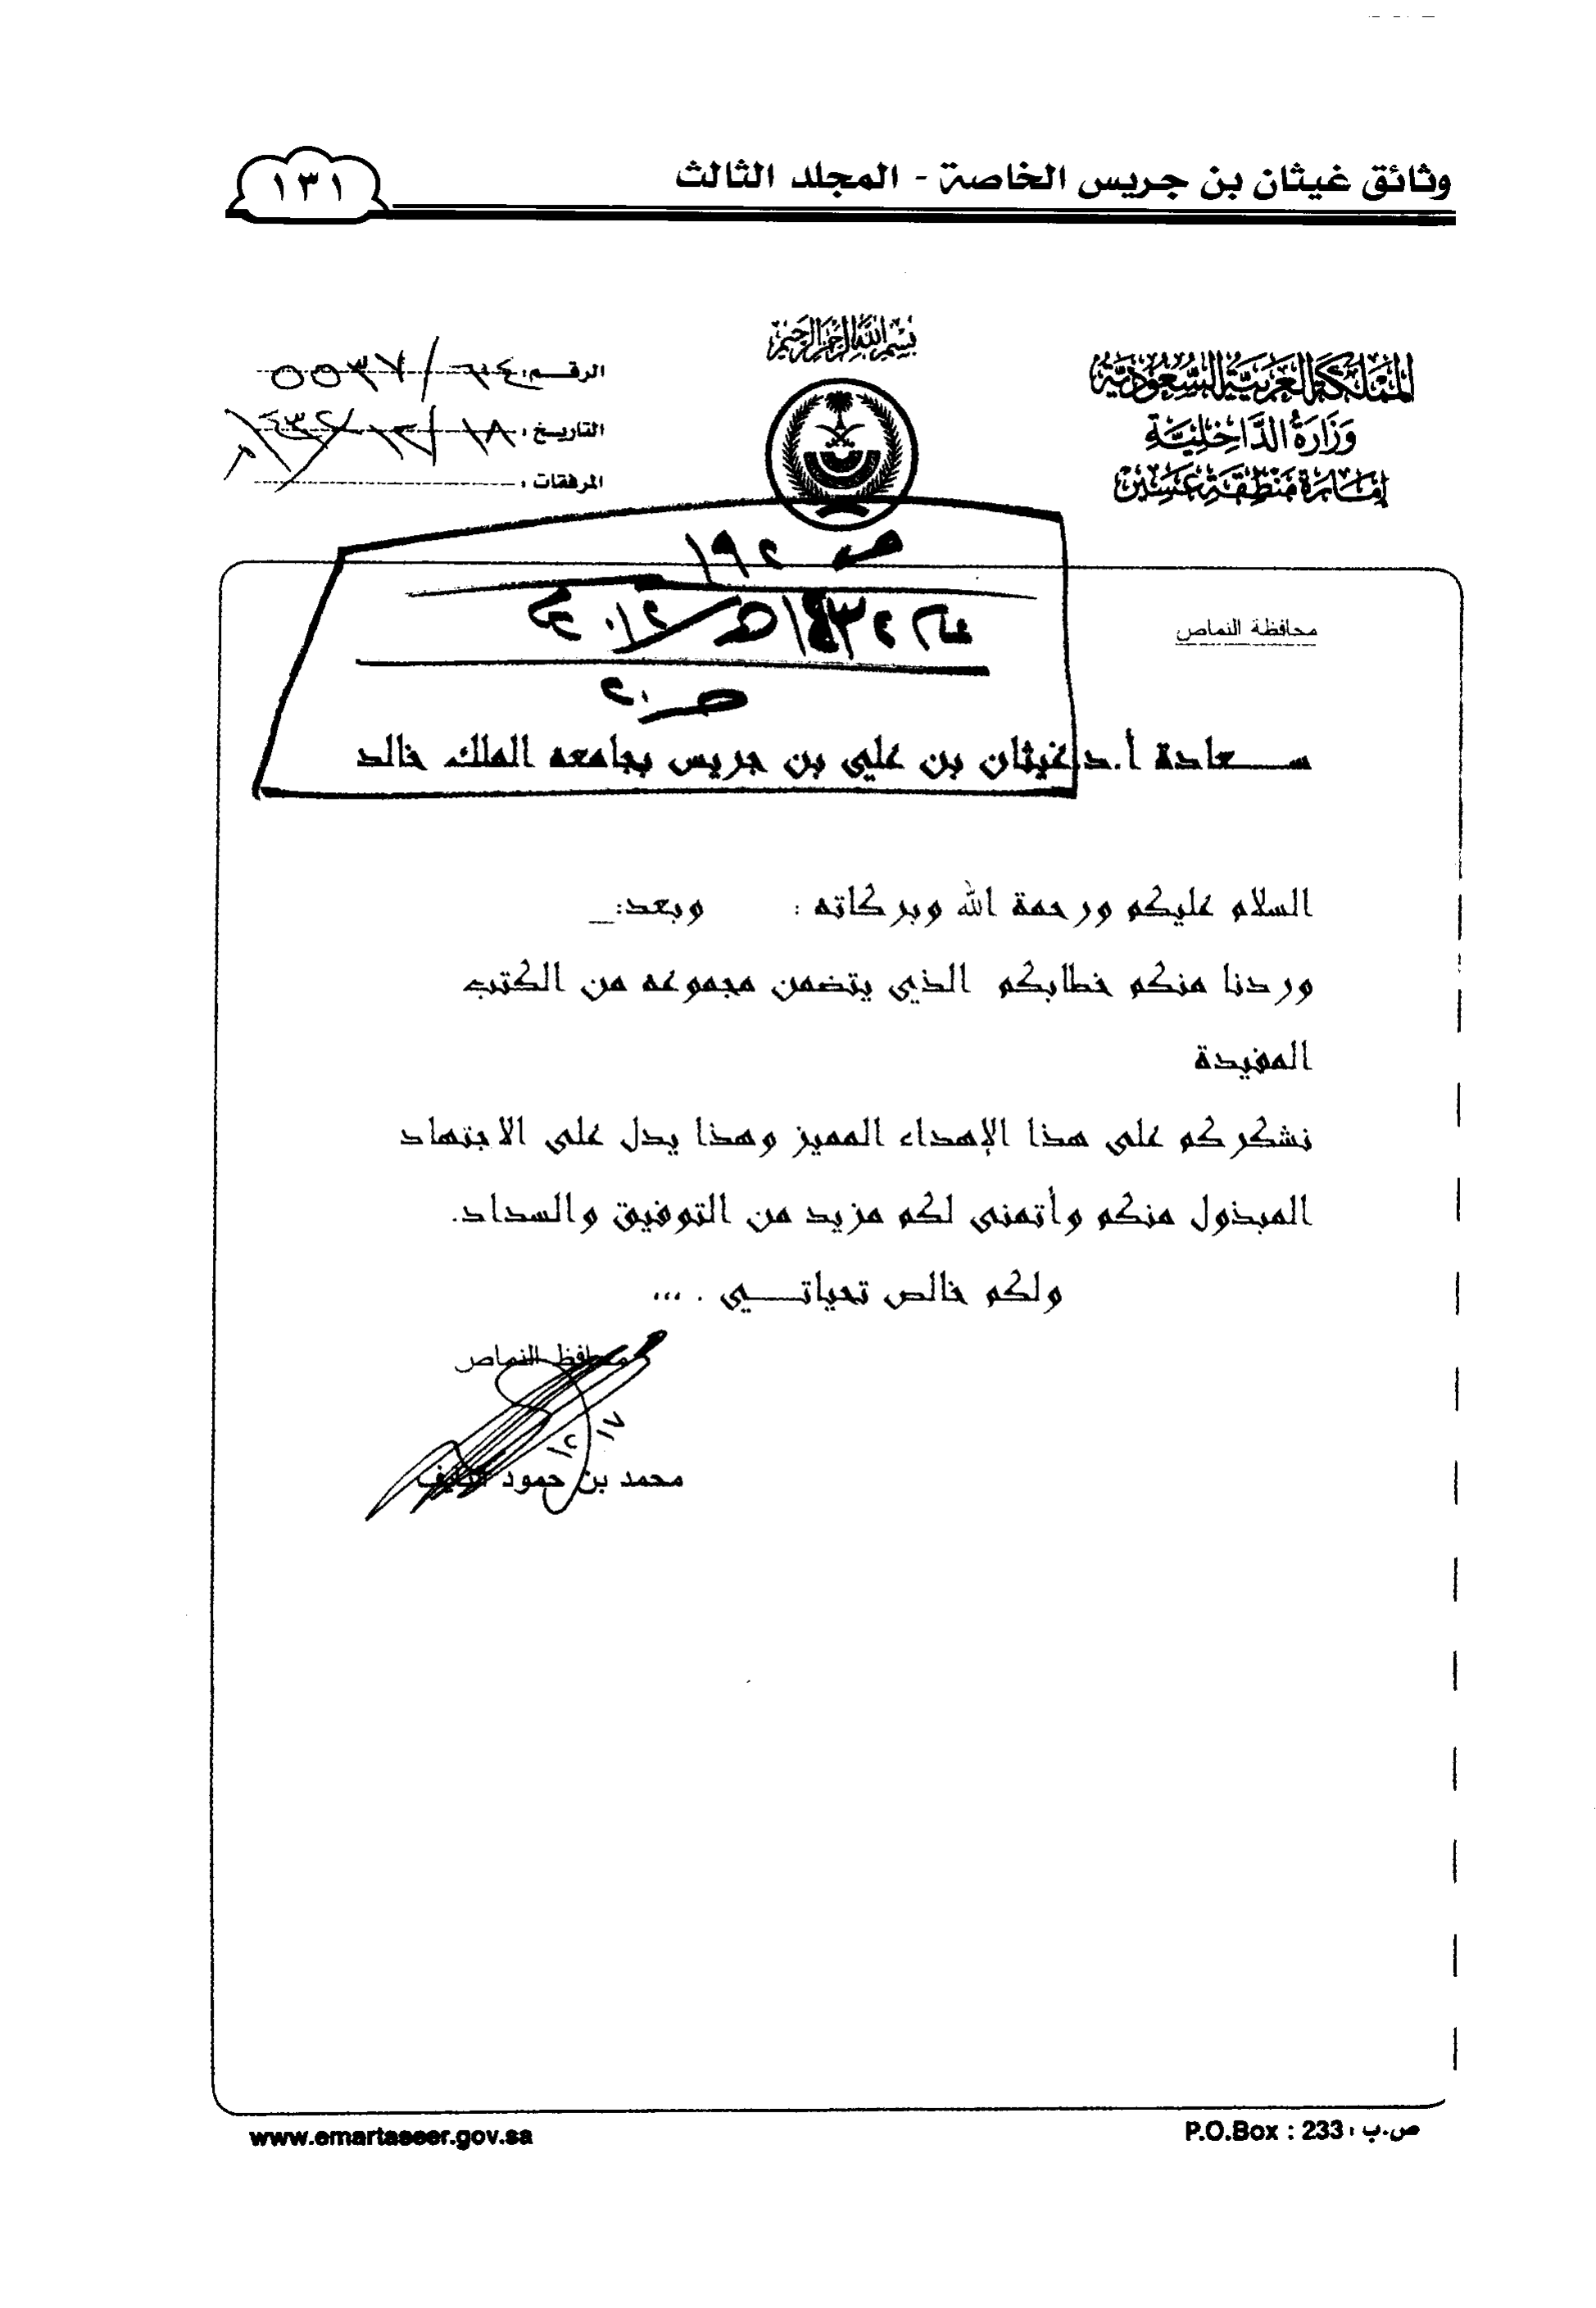 وثائق غيثان بن جريس الخاصة - المجلد الثالث
١٣١
بسم الله الرحمن الرحيم
المملكة العربية السعودية
وزارة الداخلية
إمارة منطقة عسير
الرقم :
التاريخ : ١٨/١٢/
المرفقات :
محافظة النماص
ص ١٩٢
ص ٢٠
سعادة أ.د غيثان بن علي بن جريس بجامعه الملك خالد
السلام عليكم ورحمة الله وبركاته : وبعد:_
وردنا منكم خطابكم الذي يتضمن مجموعه من الكتب
المفيدة
نشكركم على هذا الإهداء المميز وهذا يدل على الاجتهاد
المبذول منكم وأتمنى لكم مزيد من التوفيق والسداد.
ولكم خالص تحياتي . ...
محافظ النماص
١٧
١٢
محمد بن حمود
www.emartaseer.gov.sa
P.O.Box : 233 ص.ب :